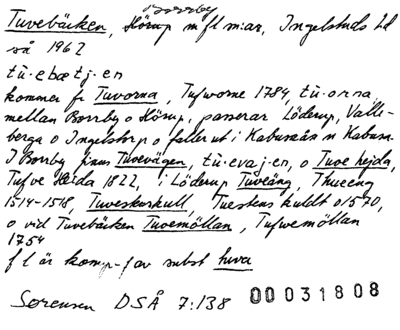 Borrby
Tuvebäcken, Hörup m fl m:ar, Ingelstads hd
så 1962
tù·ebætj·en
kommer fr Tuvorna, Tufworne 1784, tù·orna,
mellan Borrby o Hörup, passerar Löderup, Valle-
berga o Ingelstorp o faller ut i Kabusaån n Kabusa.
I Borrby finns Tuvevägen, tù·evaj·en, o Tuve hejda,
Tufve Heida 1822, i Löderup Tuveäng, Thueeng
1514-1518, Tuveskurkull, Tuestens kuldt o/570,
o vid Tuvebäcken Tuvemöllan, Tufwemöllan
1754
f l är komp-f av subst tuva
Sørensen DSÅ 7:138 00031808